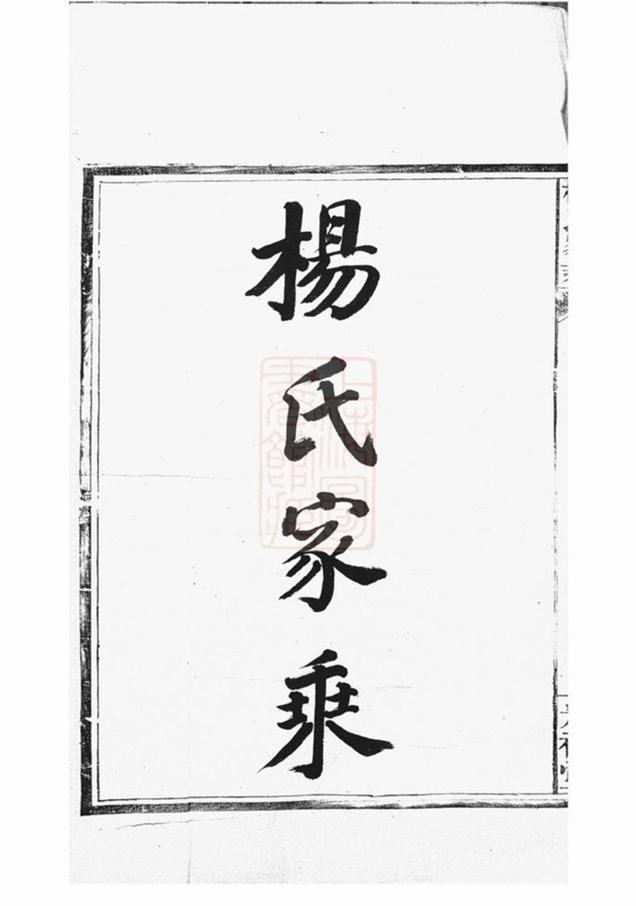 楊氏家乘